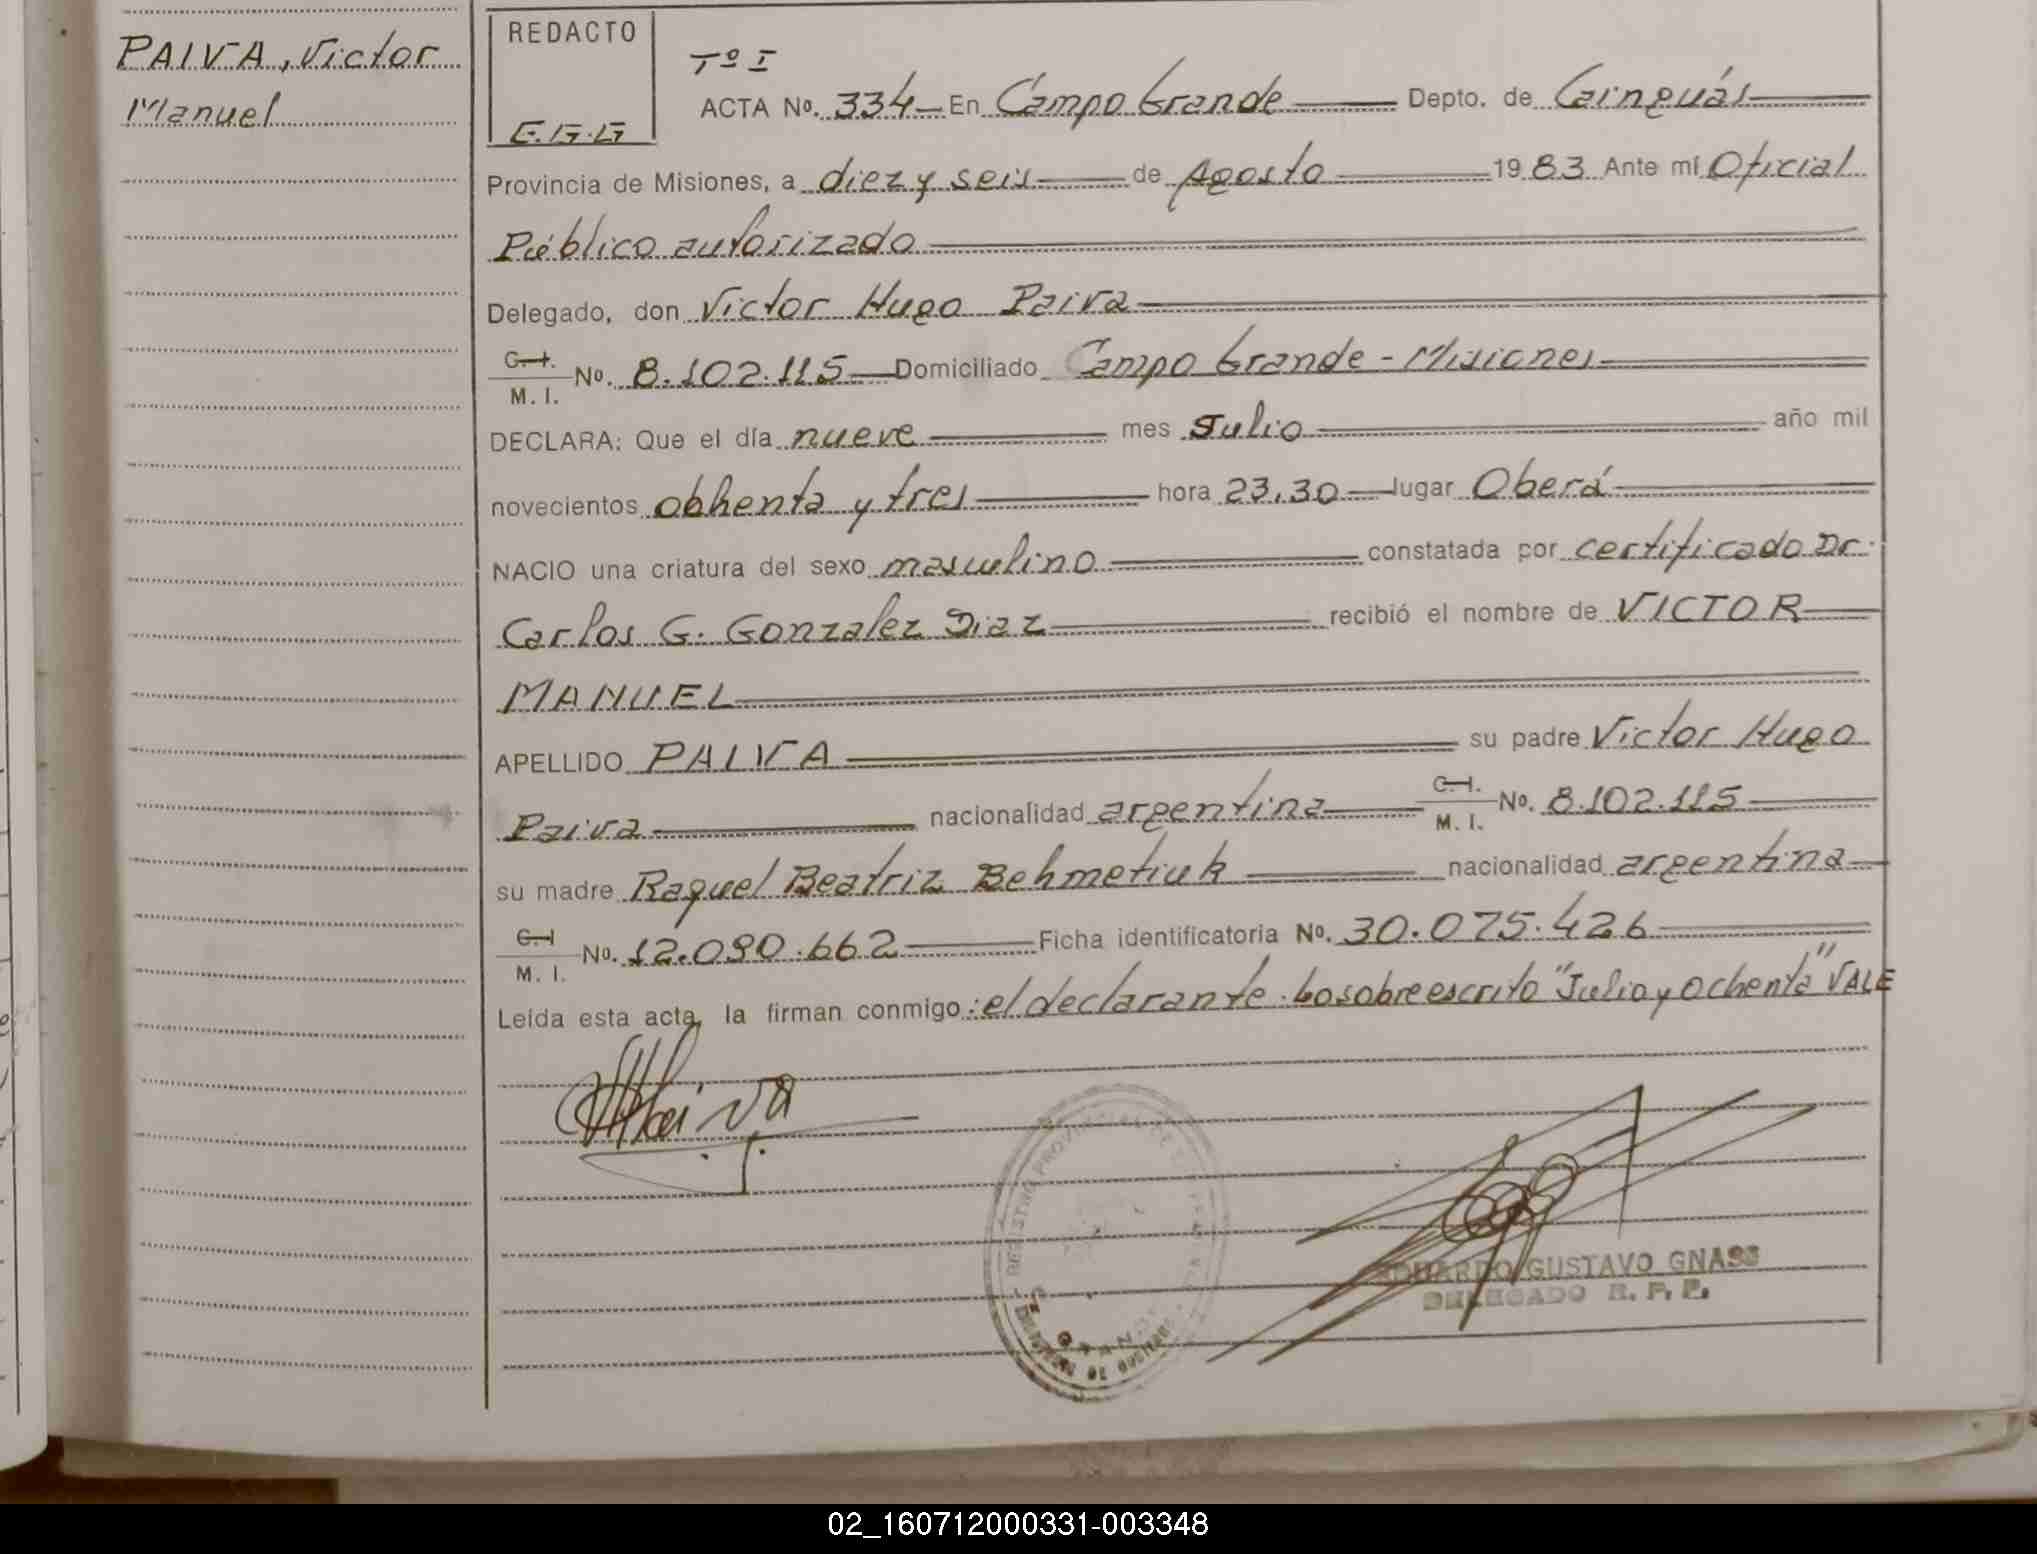 PAIVA, Victor
Manuel
REDACTO
E.G.G
Tº I
ACTA Nº. 334 En Campo Grande Depto. de Cainguás
Provincia de Misiones, a diez y seis de Agosto 1983 Ante mí Oficial
Público autorizado
Delegado, don Victor Hugo Paiva
C. I.
M. I. Nº. 8.102.115 Domiciliado Campo Grande - Misiones
DECLARA: Que el día nueve mes Julio año mil
novecientos ochenta y tres hora 23.30 lugar Oberá
NACIO una criatura del sexo masculino constatada por certificado Dr.
Carlos G. Gonzalez Diaz recibió el nombre de VICTOR
MANUEL
APELLIDO PAIVA su padre Victor Hugo
Paiva nacionalidad argentina C. I. M. I. Nº. 8.102.115
su madre Raquel Beatriz Behmetiuk nacionalidad argentina
C. I
M. I. Nº. 12.090.662 Ficha identificatoria Nº. 30.075.426
Leída esta acta, la firman conmigo: el declarante. Lo sobreescrito "Julio y Ochenta" VALE
REGISTRO PROVINCIAL DE
EDUARDO GUSTAVO GNASS
DELEGADO R. P. P.
02_160712000331-003348